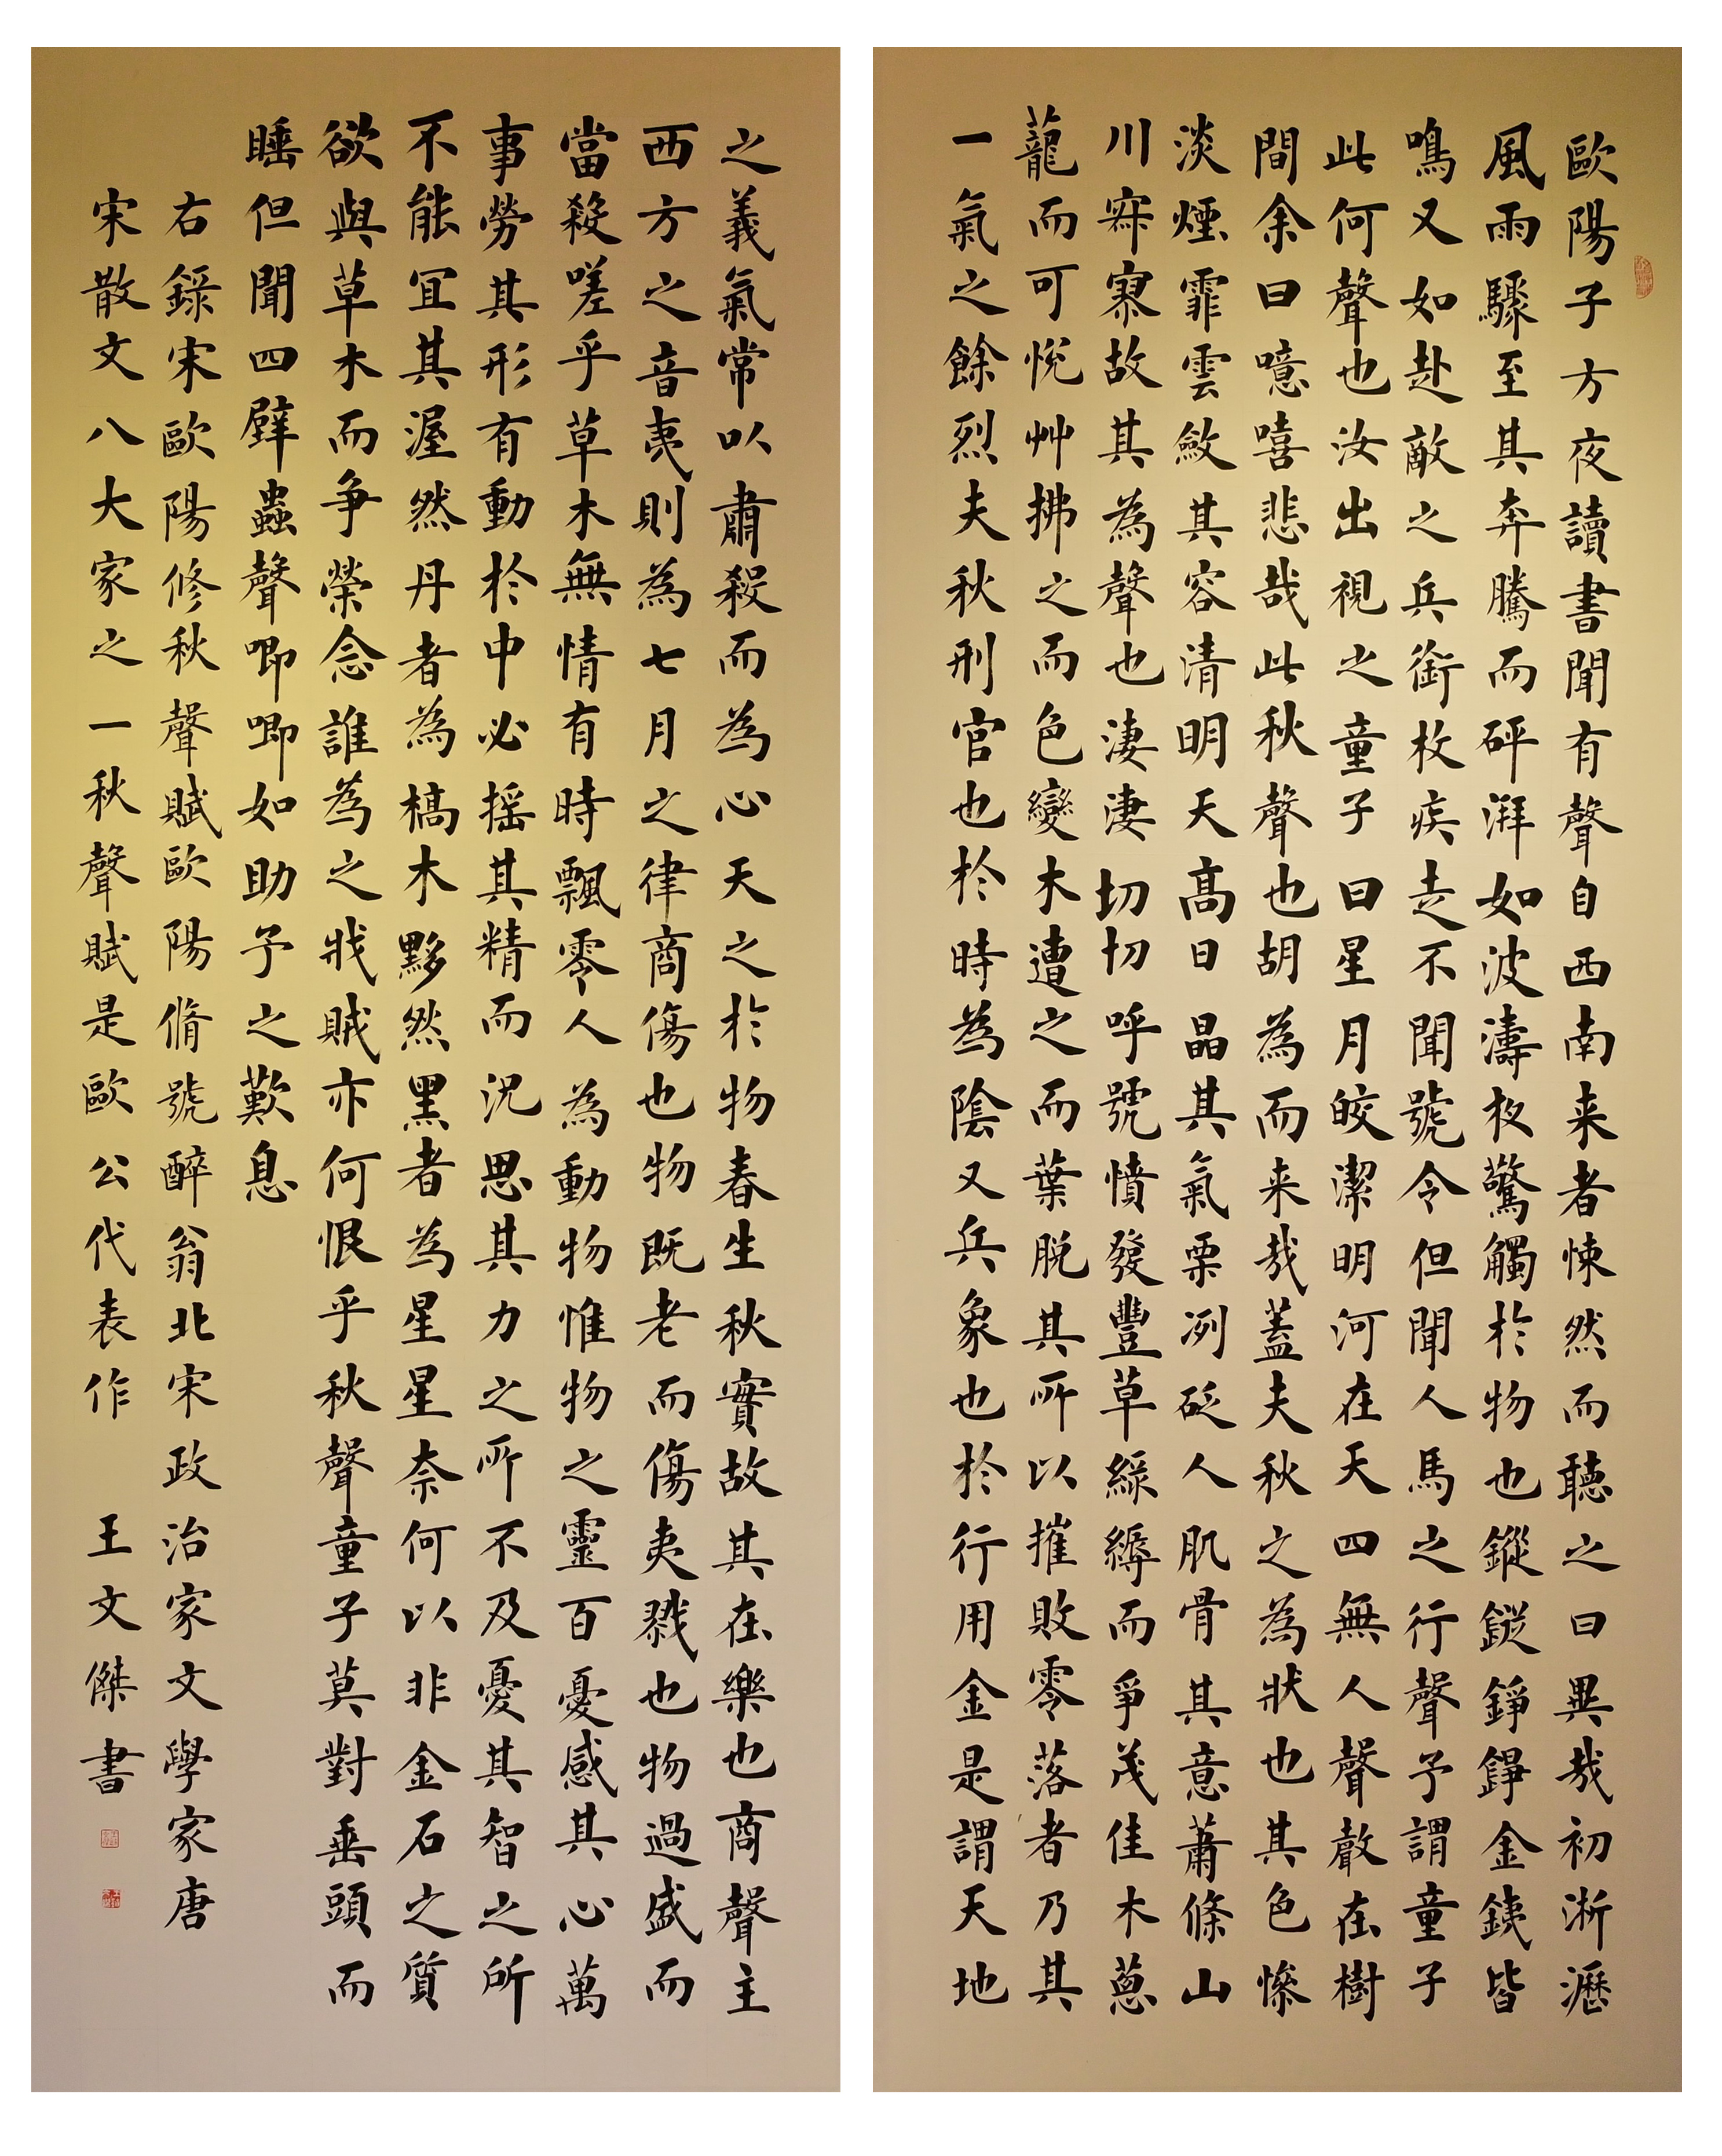 歐陽子方夜讀書聞有聲自西南来者悚然而聽之曰異哉初淅瀝
風雨驟至其奔騰而砰湃如波濤夜驚觸於物也鏦鏦錚錚金銕皆
鳴又如赴敵之兵銜枚疾走不聞號令但聞人馬之行聲予謂童子
此何聲也汝出視之童子曰星月皎潔明河在天四無人聲聲在樹
間余曰噫嘻悲哉此秋聲也胡為而来哉蓋夫秋之為狀也其色慘
淡煙霏雲斂其容清明天高日晶其氣栗冽砭人肌骨其意蕭條山
川寂寥故其為聲也淒淒切切呼號憤發豐草綠縟而爭茂佳木蔥
蘢而可悅艸拂之而色變木遭之而葉脫其所以摧敗零落者乃其
一氣之餘烈夫秋刑官也於時為陰又兵象也於行用金是謂天地
之義氣常以肅殺而為心天之於物春生秋實故其在樂也商聲主
西方之音夷則為七月之律商傷也物既老而傷夷戮也物過盛而
當殺嗟乎草木無情有時飄零人為動物惟物之靈百憂感其心萬
事勞其形有動於中必摇其精而況思其力之所不及憂其智之所
不能宜其渥然丹者為槁木黟然黑者為星星奈何以非金石之質
欲與草木而争榮念誰為之戕賊亦何恨乎秋聲童子莫對垂頭而
睡但聞四壁蟲聲唧唧如助予之歎息
右錄宋歐陽修秋聲賦歐陽脩號醉翁北宋政治家文學家唐
宋散文八大家之一秋聲賦是歐公代表作 王文傑書